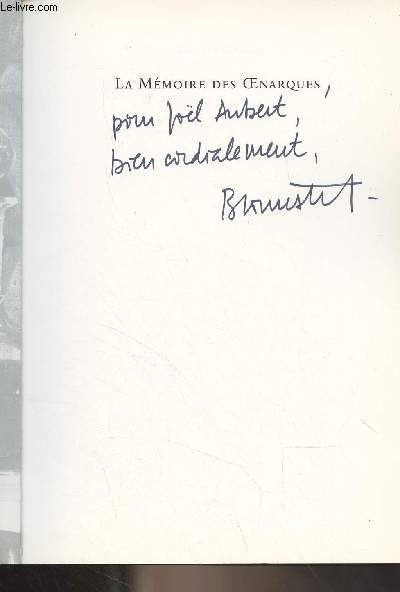 Le-livre.com
LA MÉMOIRE DES ŒNARQUES,
pour Joël Aubert,
bien cordialement,